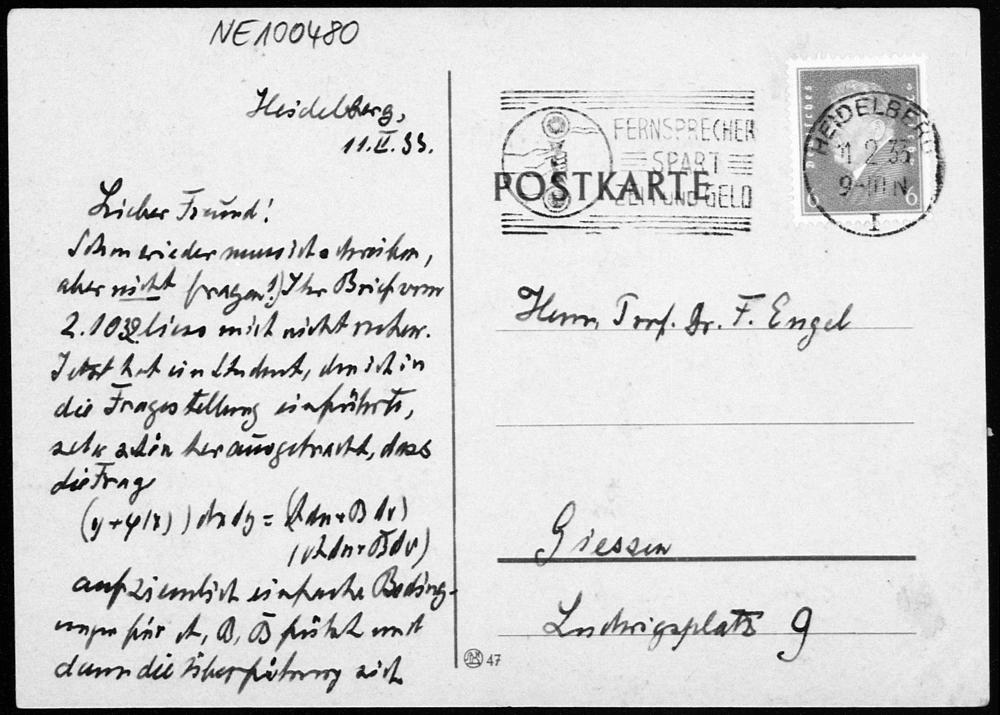 NE100480
Heidelberg,
11.II.33.
Lieber Freund!
Schon wieder muss ich schreiben,
aber nicht fragen!) Ihr Brief vom
2.10.32 liess mich nicht ruhen.
Jetzt hat ein Student, den ich in
die Fragestellung einführte,
sehr schön herausgebracht, dass
die Frage
(y+φ(x)) dx dy = (
auf ziemlich einfache Beding-
ungen für A, B, B̄ führt und
dann die Überführung sich
POSTKARTE
FERNSPRECHER
SPART
ZEIT UND GELD
HEIDELBERG
11.2.33
9-10 N
I
Deutsches Reich
6 6
Herrn Prof. Dr. F. Engel
Giessen
Ludwigsplatz 9
47